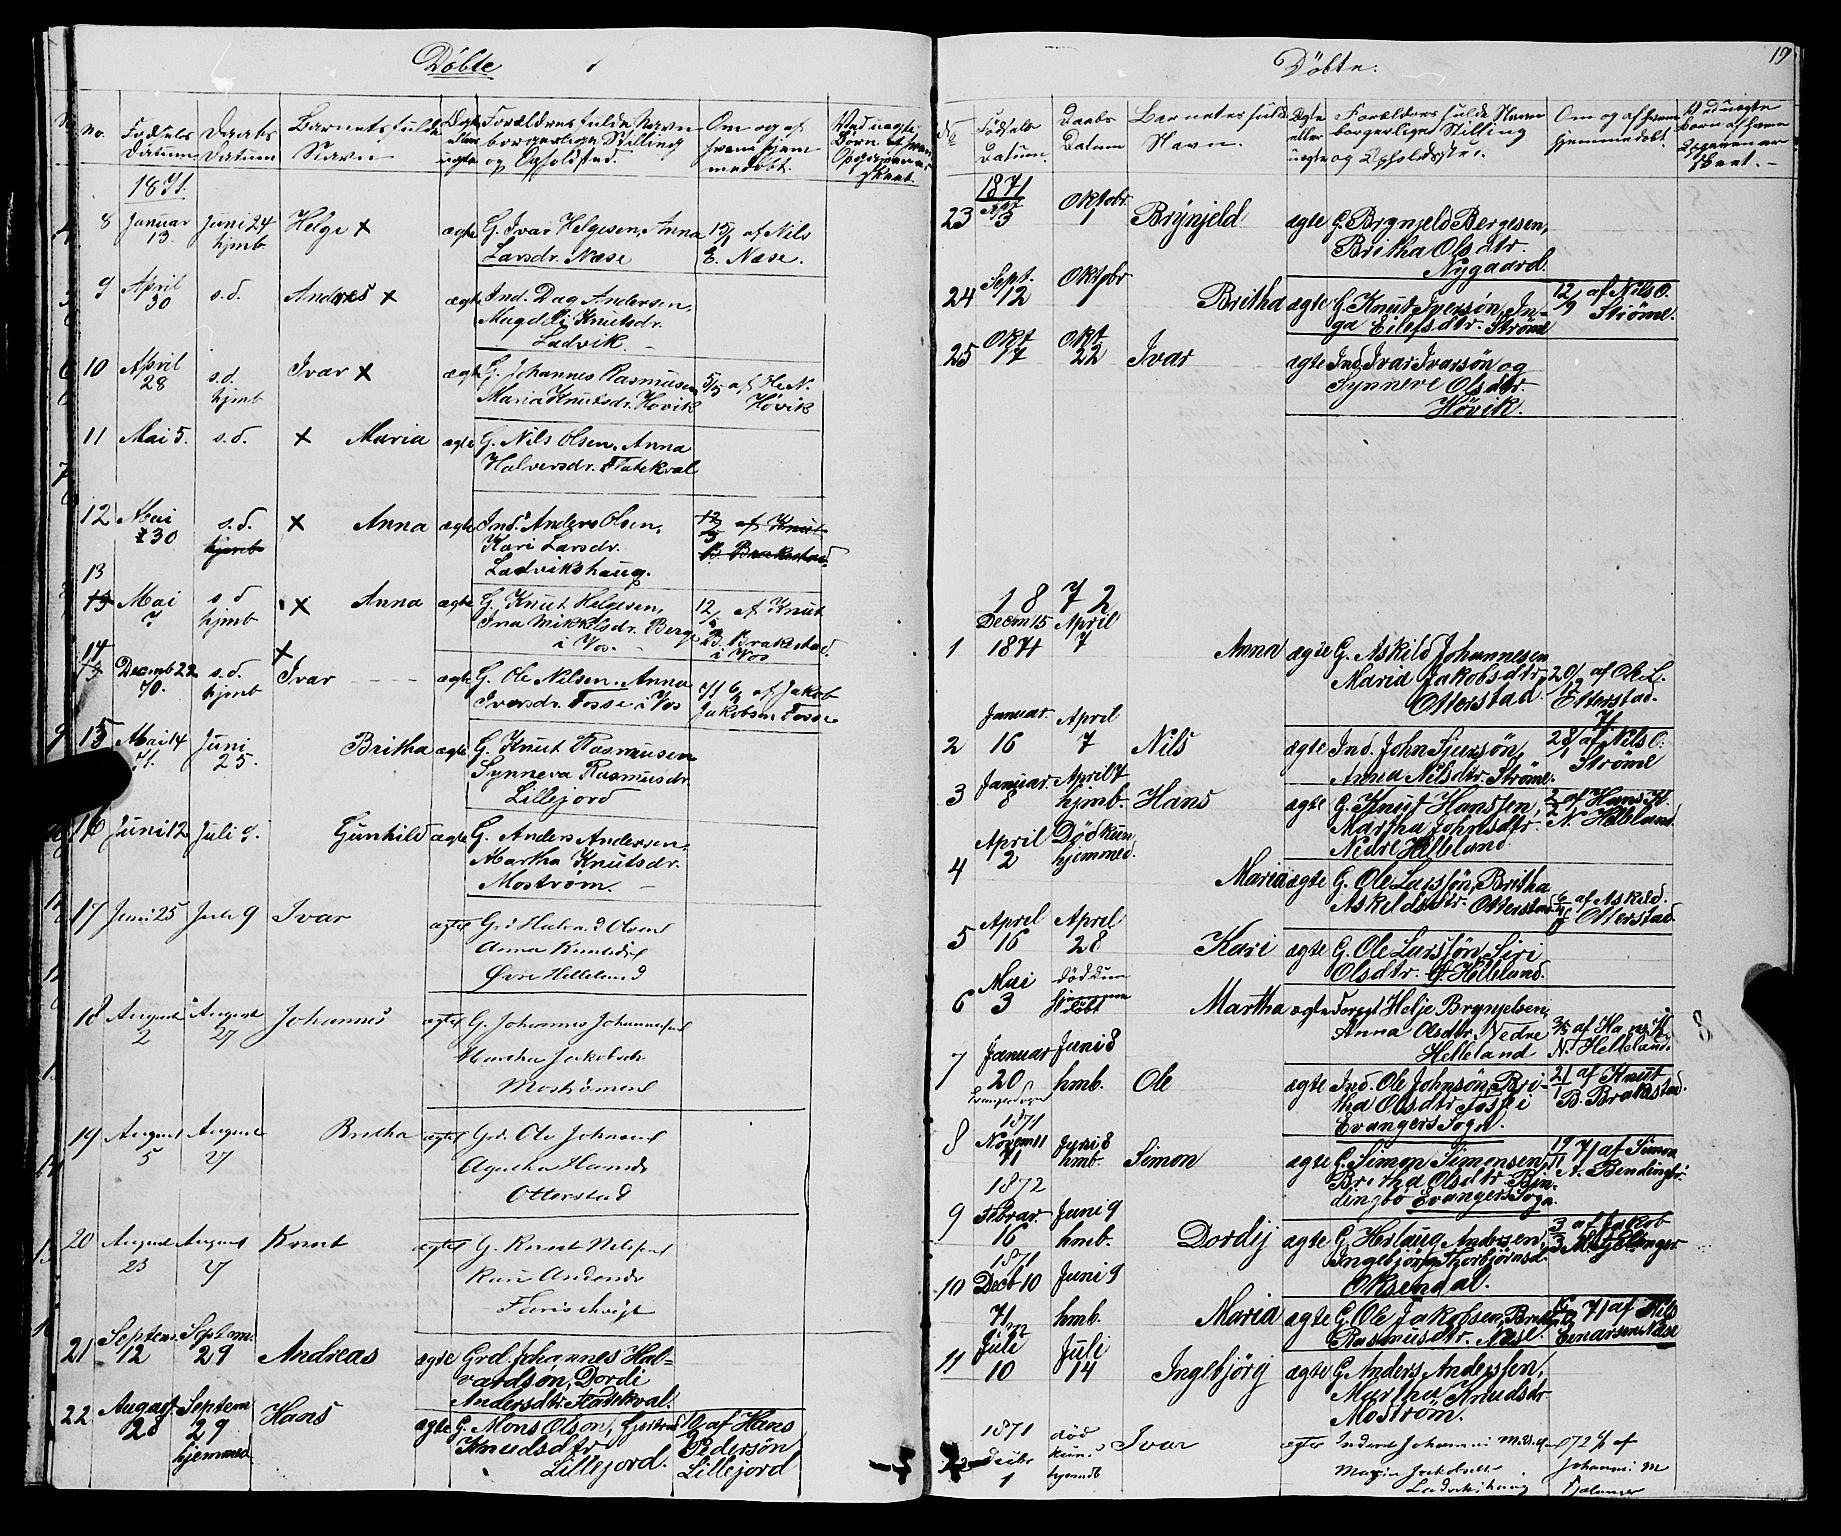 Döbte
No. Fødsels Datum Daabs Datum Barnets fulde Navn Ægte eller uægte Forældres fulde Navn borgerlige Stilling og Opholdsted. Om og af hvem hjemmedøbt.
1871.
8 Januar 13. Juni 24 hjmb Helge × ægte G. Ivar Helgesen, Anna Larsdr. Næse 15/1 af Nils E. Næse.
9 April 30 s.d. Andres × ægte Ind. Dag Andersen, Magdli Knutsdr. Ladvik.
10 April 28 s.d. hjmb Ivar × ægte G. Johannes Rasmusen Maria Knutsdr. Hovik 5/5 af Ole N. Hövik
11 Mai 5. s.d. × Maria ægte G. Nils Olsen, Anna Halversdr. Flatekval
12 Mai 30 s.d. hjmb × Anna ægte Ind. Anders Olsen, Kari Larsdr. Ladvikshaug. 12/5 af Knut B. Brakestad.
13 Mai 7 s d hjmb × Anna ægte G. Knut Helgesen, Ina Mikkelsdr. Berge i Vos. 12/5 af Knut B. Brakestad i Vos
14 Decemb 22 70. s.d. hjmb × Ivar ægte G. Ole Nilsen, Anna Iversdr. Fosse i Vos af Jakob Jakobsen Fosse
15 Mai 14 71. Juni 25. Britha ægte G. Knut Rasmusen Synneva Rasmusdr. Lillejord
16 Juni 12 Juli 9. Gunhild ægte G. Anders Andersen, Martha Knutsdr. Moström.
17 Juni 25 Juli 9 Ivar ægte Grd Halvard Olsen Anna Knudsdr Øvre Helleland
18 August 2 August 27 Johannes ægte G. Johannes Johannesen Martha Jakobsdr Moströmen
19 August 5 August 27 Britha ægte Grd. Ole Johnsen Agatha Hansdr Otterstad
20 August 23 August 27 Knut ægte G. Knut Nilsen Kari Andersdr
21 Septem. 12 Septem. 29 Andreas ægte Grd. Johannes Halvardson, Dordi Andersdtr. Flatekval.
22 August 28 Septem 29 hjemmed. Hans ægte G. Mons Olson, Gjertrud Knudsdtr Lillejord. af Hans Pedersön Lillejord
Döbte.
19
No Fødsels Datum. Daabs Datum Barnets fulde Navn. Ægte eller uægte Forældres fulde Navn borgerlige Stilling og Opholdsstæd. Om og af hvem hjemmedøbt.
1871
23 3 Oktobr 1 Brÿnjeld ægte G. Brynjeld Bergesen, Britha Olsdtr. Nygaard.
24 Sept. 12 Oktobr 1 Britha ægte G. Knut Iversön, Inga Eilefsdtr. Ströme 12/9 af Nils O. Ströme.
25 Okt 17 Okt 22 Ivar ægte Ind. Ivar Ivarsön og Synneve Olsdtr. Hövik.
1872
1 Decem 15 1871 April 7 Anna ægte G. Askild Johannesen Maria Jakobsdtr, Otterstad. 20/12 af Ole L. Otterstad. 71
2 Januar 16 April 7 Nils ægte Ind. John Sjursön, Anna Nilsdtr. Ströme. 28/1 af Nils O. Ströme
3 Januar 8 April 7 hjmb. Hans ægte G. Knut Hanssen, Martha Johnsdtr. Nedre Helleland. 2/2 af Hans K. N. Helleland
4 April 2 Död kun hjemmed. Maria ægte G. Ole Larssön, Britha Askeldsdtr. Otterstad 6/4 af Askeld. Otterstad
5 April 16 April 28 Kari ægte G. Ole Larssön, Siri Olsdtr. Helleland.
6 Mai 3 död kun hjemme döbt Martha ægte Forpgt Helje Brynjelsen, Anna Olsdtr. Nedre Helleland 3/5 af Hans K. N. Helleland. 8
7 Januar 20 Evanger Sogn Juni 8 hmb. Ole ægte Ind. Ole Johnsön, Britha Olsdtr Fosse i Evangers Sogn. 21/1 af Knut B. Brakestad.
1871
8 Novem 11 71 Juni 8 hmb. Simon ægte G. Simon Simonsen, Britha Olsdtr. Bindingbö Evangers Sogn. 19/11 71 af Simon A. Bindingbö.
1872
9 Februar. 16 Juni 9 hmb. Dordij ægte G. Herlaug Andersen, Ingebjörg Thorbjörnsd. Oksendal. 3/3 af Jakob
1871
10 Decb 10 71 Juni 9 hmb. Maria ægte G. Ole Jakobsen, Britha Rasmusdtr. Næse. 71 af Nils Einarsen Næse
11 Juli 10 Juli 14 Ingebjörg ægte G. Anders Anderssen, Martha Knudsdtr Moström.
1871 1 död kun hjemdb Ivar ægte Inderst Johannes Marie Ladvikshaug 72 af Johannes M